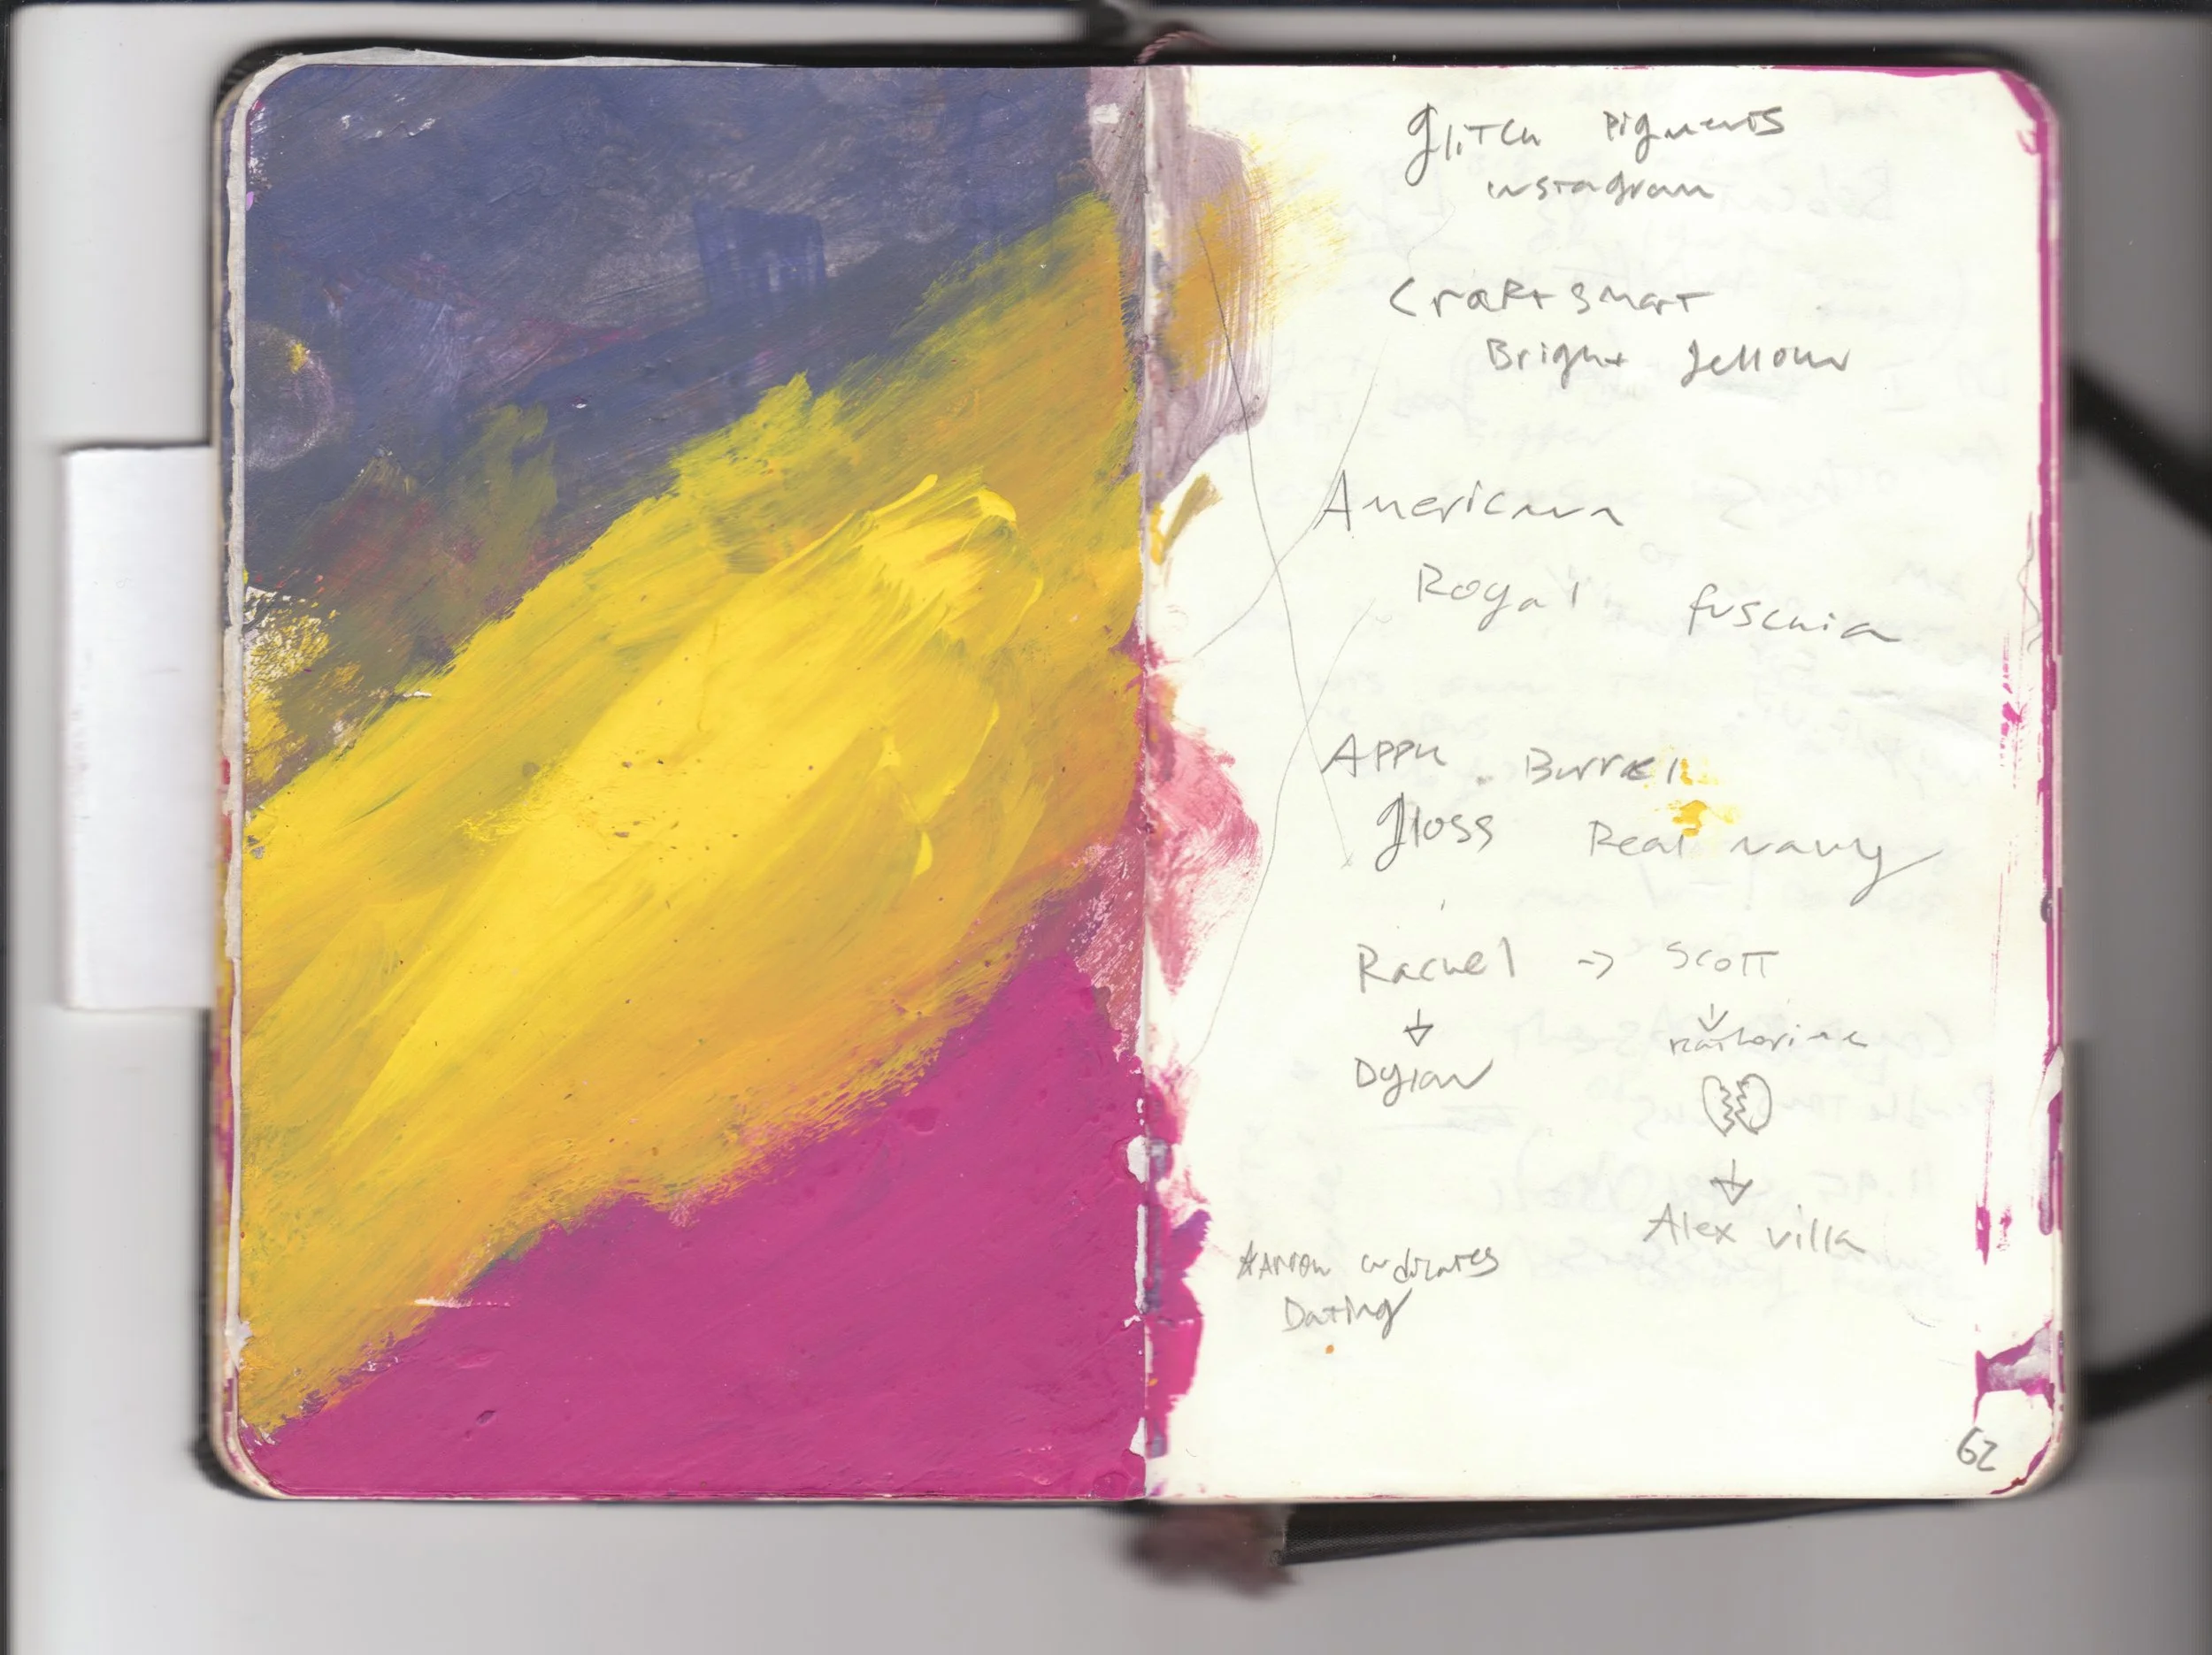 Glitch Pigments
instagram
Craft Smart
Bright Yellow
Americana
Royal fuschia
Apple Barrel
gloss Real navy
Rachel → Scott
↓ ↓
Dylan Katherine
↓
Alex villa
*Arrow indicates
Dating
62